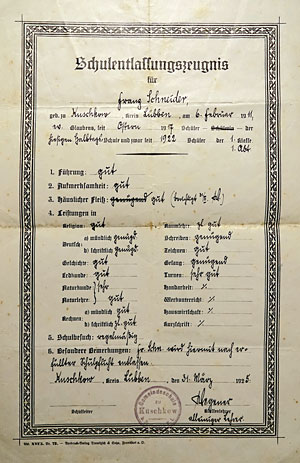 Schulentlassungszeugnis
für
Franz Schneider,
geb. zu Kuschkow, Kreis Lübben, am 6. Februar 1911,
ev. Glaubens, seit Ostern 1917 Schüler – Schülerin – der
hiesigen Halbtags-Schule und zwar seit 1922 Schüler der 1. Klasse
1. Abt.
1. Führung: gut
2. Aufmerksamkeit: gut
3. Häuslicher Fleiß: genügend gut
4. Leistungen in
Religion: gut
Deutsch: a) mündlich genügd.
b) schriftlich genügd.
Geschichte: gut
Erdkunde: gut
Naturkunde: sehr
Naturlehre: gut
Rechnen: a) mündlich gut
b) schriftlich zl. gut
Raumlehre: zl. gut
Schreiben: genügend
Zeichnen: gut
Gesang: genügend
Turnen: sehr gut
Handarbeit: ./.
Werkunterricht: ./.
Hauswirtschaft: ./.
Kurzschrift: ./.
5. Schulbesuch: regelmäßig
6. Besondere Bemerkungen: wird hiermit nach er-
füllter Schulpflicht entlassen.
Kuschkow, Kreis Lübben, den 31. März 1925.
Kuschkow
Wegener
Schulleiter
Klassenlehrer
alleiniger Lehrer